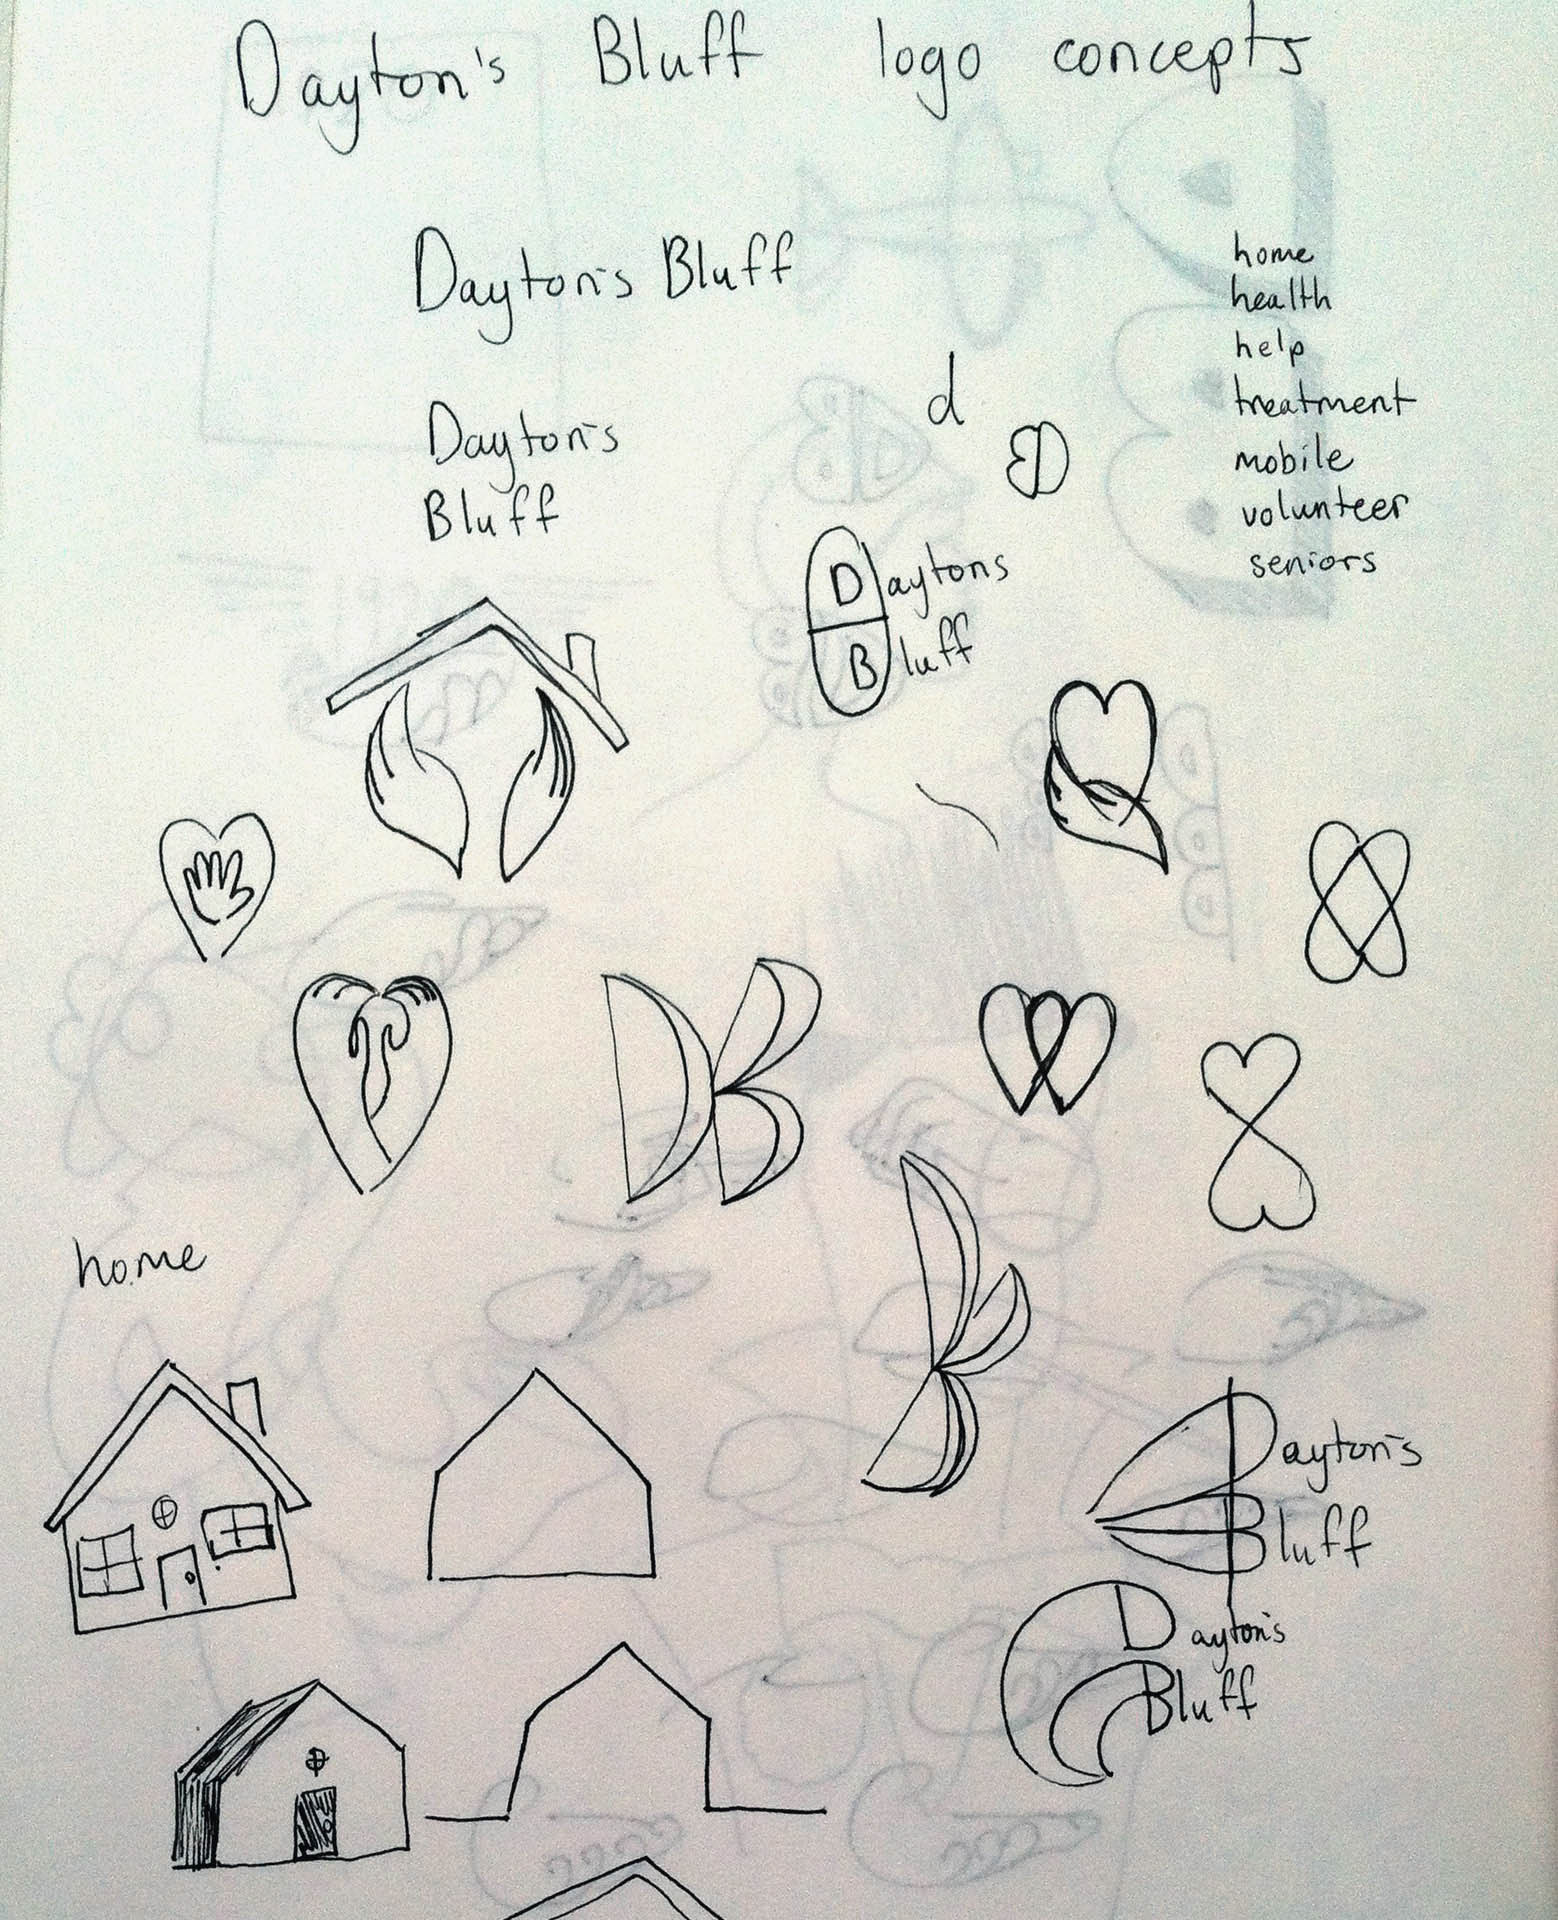 Dayton's Bluff logo concepts
Dayton's Bluff
Dayton's
Bluff
home
health
help
treatment
mobile
volunteer
seniors
d
BD
Daytons
Bluff
DB
home
Dayton's
Bluff
Dayton's
Bluff